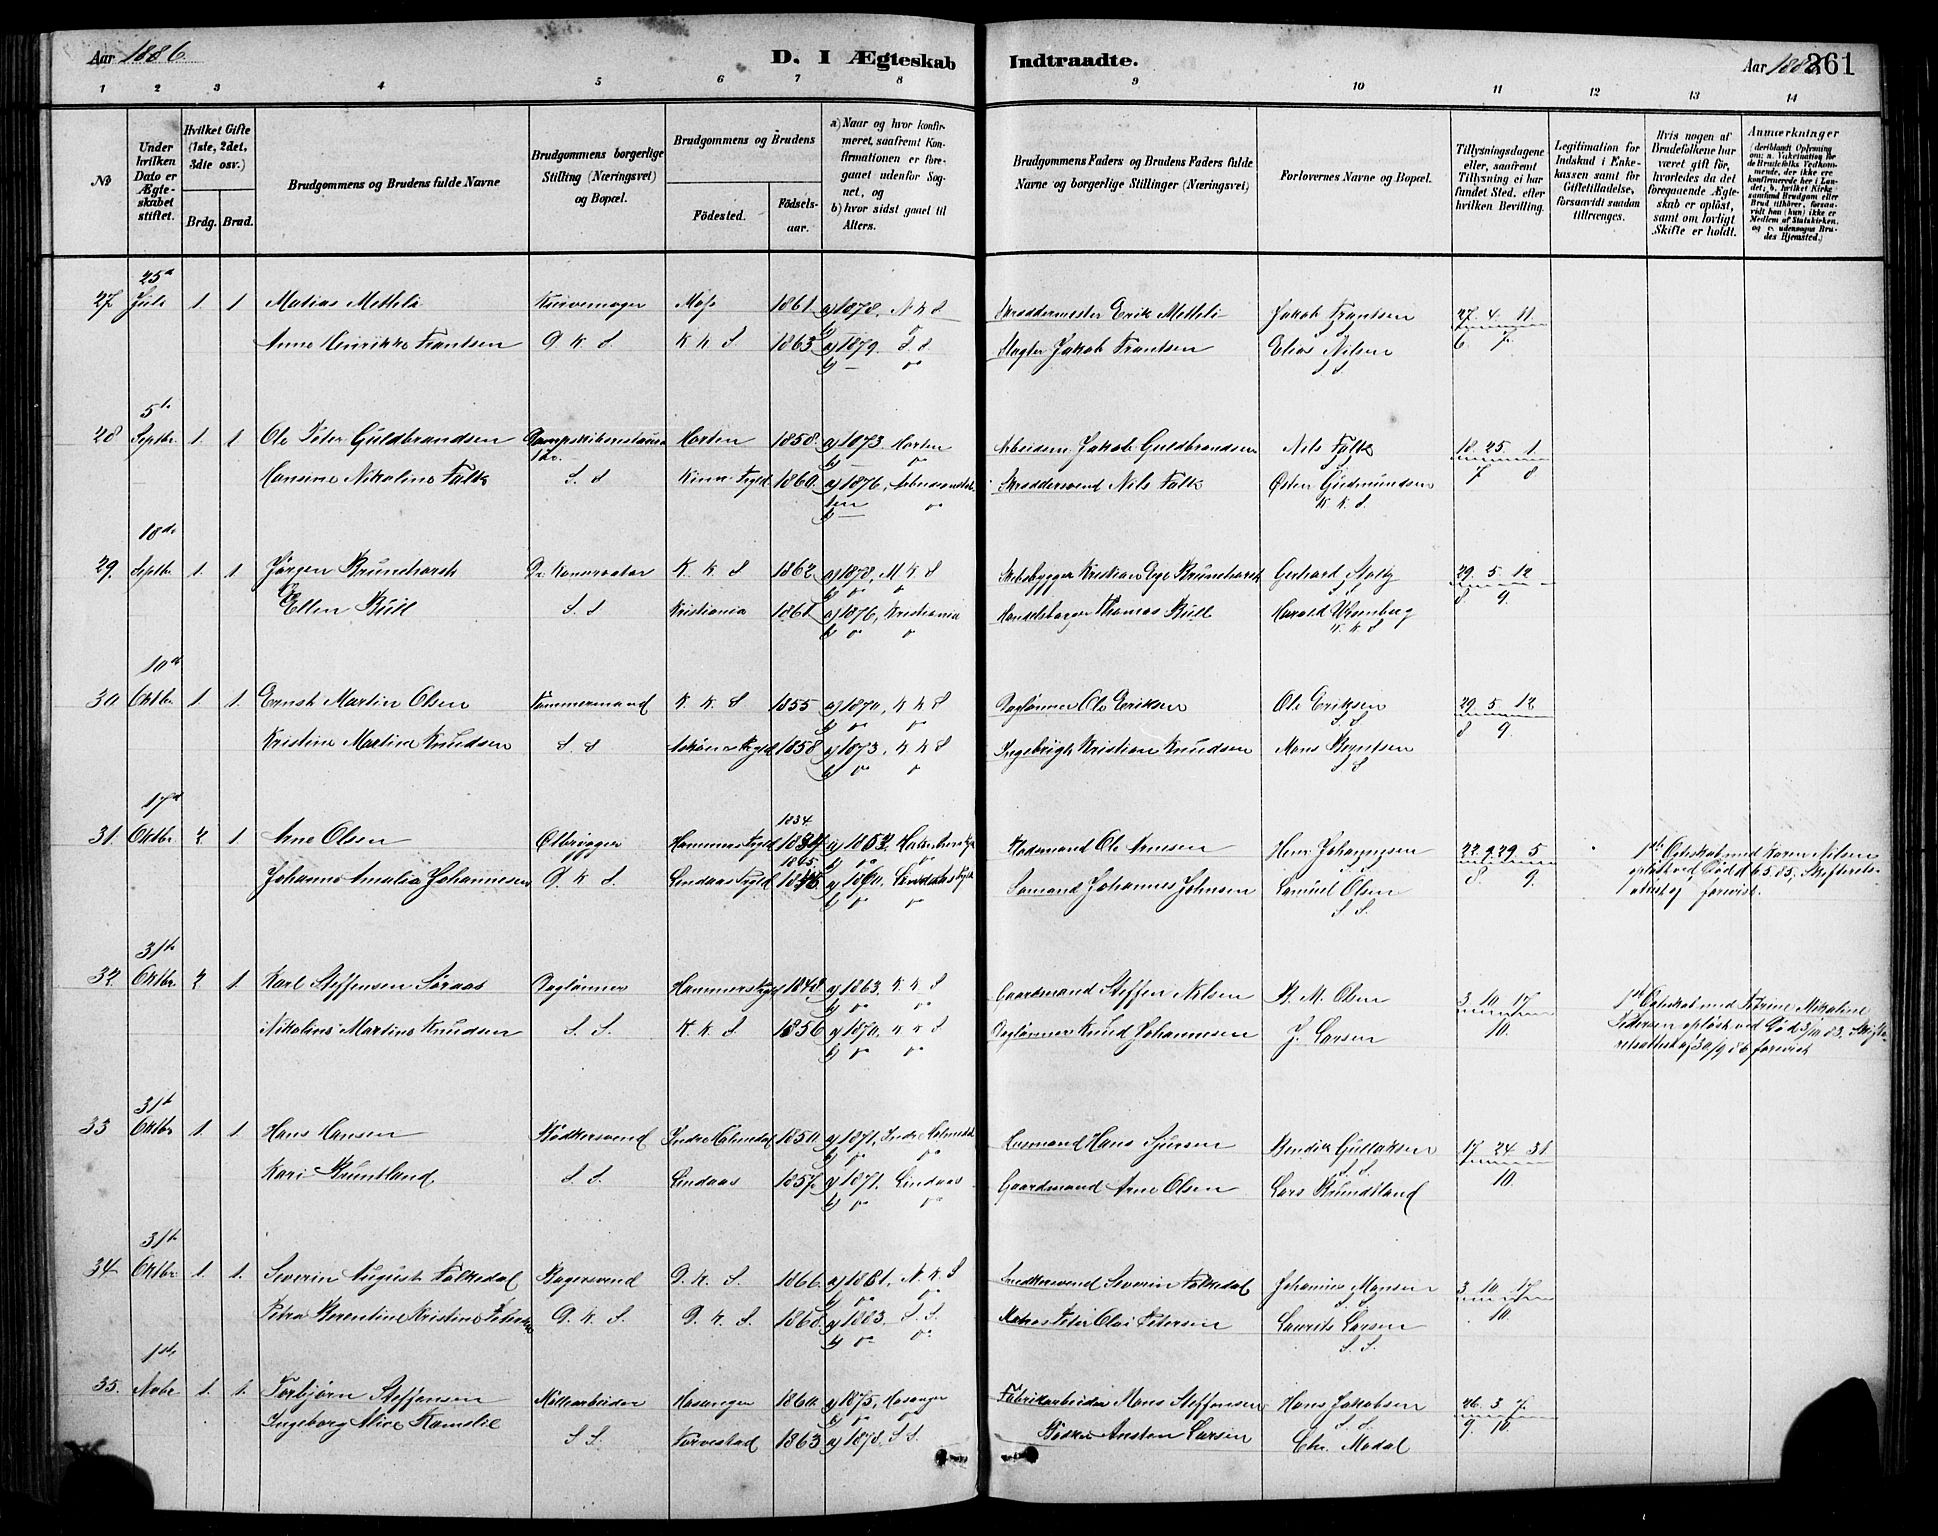 Aar 1886.
D. I Ægteskab Indtraadte.
Aar 1886 361
1 2 3 4 5 6 7 8 9 10 11 12 13 14
No
Under hvilken Dato er Ægteskabet stiftet.
Hvilket Gifte (1ste, 2det, 3die osv.)
Brdg. Brud.
Brudgommens og Brudens fulde Navne
Brudgommens borgerlige Stilling (Næringsvei) og Bopæl.
Brudgommens og Brudens
Födested.
Födselsaar.
a) Naar og hvor konfirmeret, saafremt Konfirmationen er foregaaet udenfor Sognet, og
b) hvor sidst gaaet til Alters.
Brudgommens Faders og Brudens Faders fulde Navne og borgerlige Stillinger (Næringsvei)
Forlovernes Navne og Bopæl.
Tillysningsdagene eller, saafremt Tillysning ei har fundet Sted, efter hvilken Bevilling.
Legitimation for Indskud i Enkekassen samt för Giftetilladelse, forsaavidt saadan tiltrænges.
Hvis nogen af Brudefolkene har været gift för, hvorledes da det foregaaende Ægteskab er oplöst, samt om lovligt Skifte er holdt.
Anmærkninger (deriblandt Oplysning om: a. Vakcination for de Brudefolks Vedkommende, der ikke ere konfirmerede her i Landet; b. hvilket Kirkesamfund Brudgom eller Brud tilhörer, forsaavidt han (hun) ikke er Medlem af Statskirken, og c. udensogns Brudes Hjemsted.)
25de
27. Juli 1. 1 Matias Methli Kurvemager Moss 1861 a) 1878, N K S Skræddermester Erik Methli Jakob Frantsen 27. 4. 11
Anne Henrikke Frantsen D. K S K K S 1863 a) 1879. S. S Slagter Jakob Frantsen Elias Nilsen 6 7.
5te
28 Septbr. 1. 1 Ole Peter Guldbrandsen Horten 1858. a) 1873. Horten Arbeidsm. Jakob Guldbrandsen Nils Falk 18. 25. 1
Hansine Nikoline Falk S. S Kinn Prgld 1860. a) 1876, Skræddersvend Nils Falk Østen Gudmundsen 7 8
K K. S
18de
29. Septbr. 1. 1 Jörgen Brunchorst Dr. Konservator K. K S 1862 a) 1878, M K S Skibsbygger Kristian Brunchorst Gerhard Stoltz 29. 5. 12
Ellen Bull S. S Kristiania 1861 a) 1876, Kristiania Thomas Bull Harald Wesenberg 8 9.
K K S
10de
30 Oktbr. 1. 1. Ernst Martin Olsen Tømmermand K. K. S 1855 a) 1870, K K S Daglønner Ole Eriksen Ole Eriksen 29. 5. 12
Kristine Martine Knudsen S. S Prgld 1858 a) 1873, K K S Ingebrigt Kristian Knudsen Mons Berntsen 8 9.
17de
1834
31. Oktbr. 2 1 Arne Olsen Ølbrygger Hammers Prgld a) 1852. Ole Arnesen Johannesen 22. 9. 29. 5
1865
Johanne Amalia Johannesen D. K S. Lindaas Prgld Lindaas Prgld Johannes Johnsen Samuel Olsen 8. 9.
S S.
1ste Ægteskab med Karen Nilsen opløst ved Død 6.5.85, Skifteretsattest forevist.
31te
32. Oktbr. 2 1. Karl Steffensen Søraas Daglønner Hammers Prgld 1848 a) 1863. K K S Gaardmand Steffen Nilsen B. M. Olsen 3. 10. 17
Nikoline Martine Knudsen S. S. K. K. S 1856 a) 1870. K K S Daglønner Knud Johannesen J. Larsen 10.
1ste Ægteskab med Mikaline Pedersen opløst ved Død 3/10 83. Skifteretsattest af 30/9 86 forevist
31te
33 Oktbr. 1. 1. Hans Hansen Bødkersvend Indre Holmedal 1850 a) 1871, Indre Holmedal Husmand Hans Sjursen Bendik Gullaksen 17 24 31
Kari Bruntland S. S. Lindaas 1857. a) 1871. Lindaas Gaardmand Arne Olsen Lars Bruntland 10.
31te
34 Oktbr. 1. 1. Severin August Folkedal Bagersvend D. K. S. 1866. a) 1881, N. K. S Snedkersvend Severin Folkedal Johannes Monsen 3 10. 17.
Petra Berentine Kristine D. K. S. D. K. S 1868. a) 1883. S. S. Matros Peter Olai Petersen Laurits Larsen 10.
S. S.
1ste
35. Novbr 1. 1. Torbjørn Steffensen Møllearbeider Hosanger 1860. a) 1875, Hosanger Fabrikarbeider Mons Steffensen Hans Jakobsen 26. 3 7.
Ingeborg Alice Kamilie S S. Torvestad 1863 a) 1878. S S. Bødker Austen Larsen Chr. Modal 9 10.